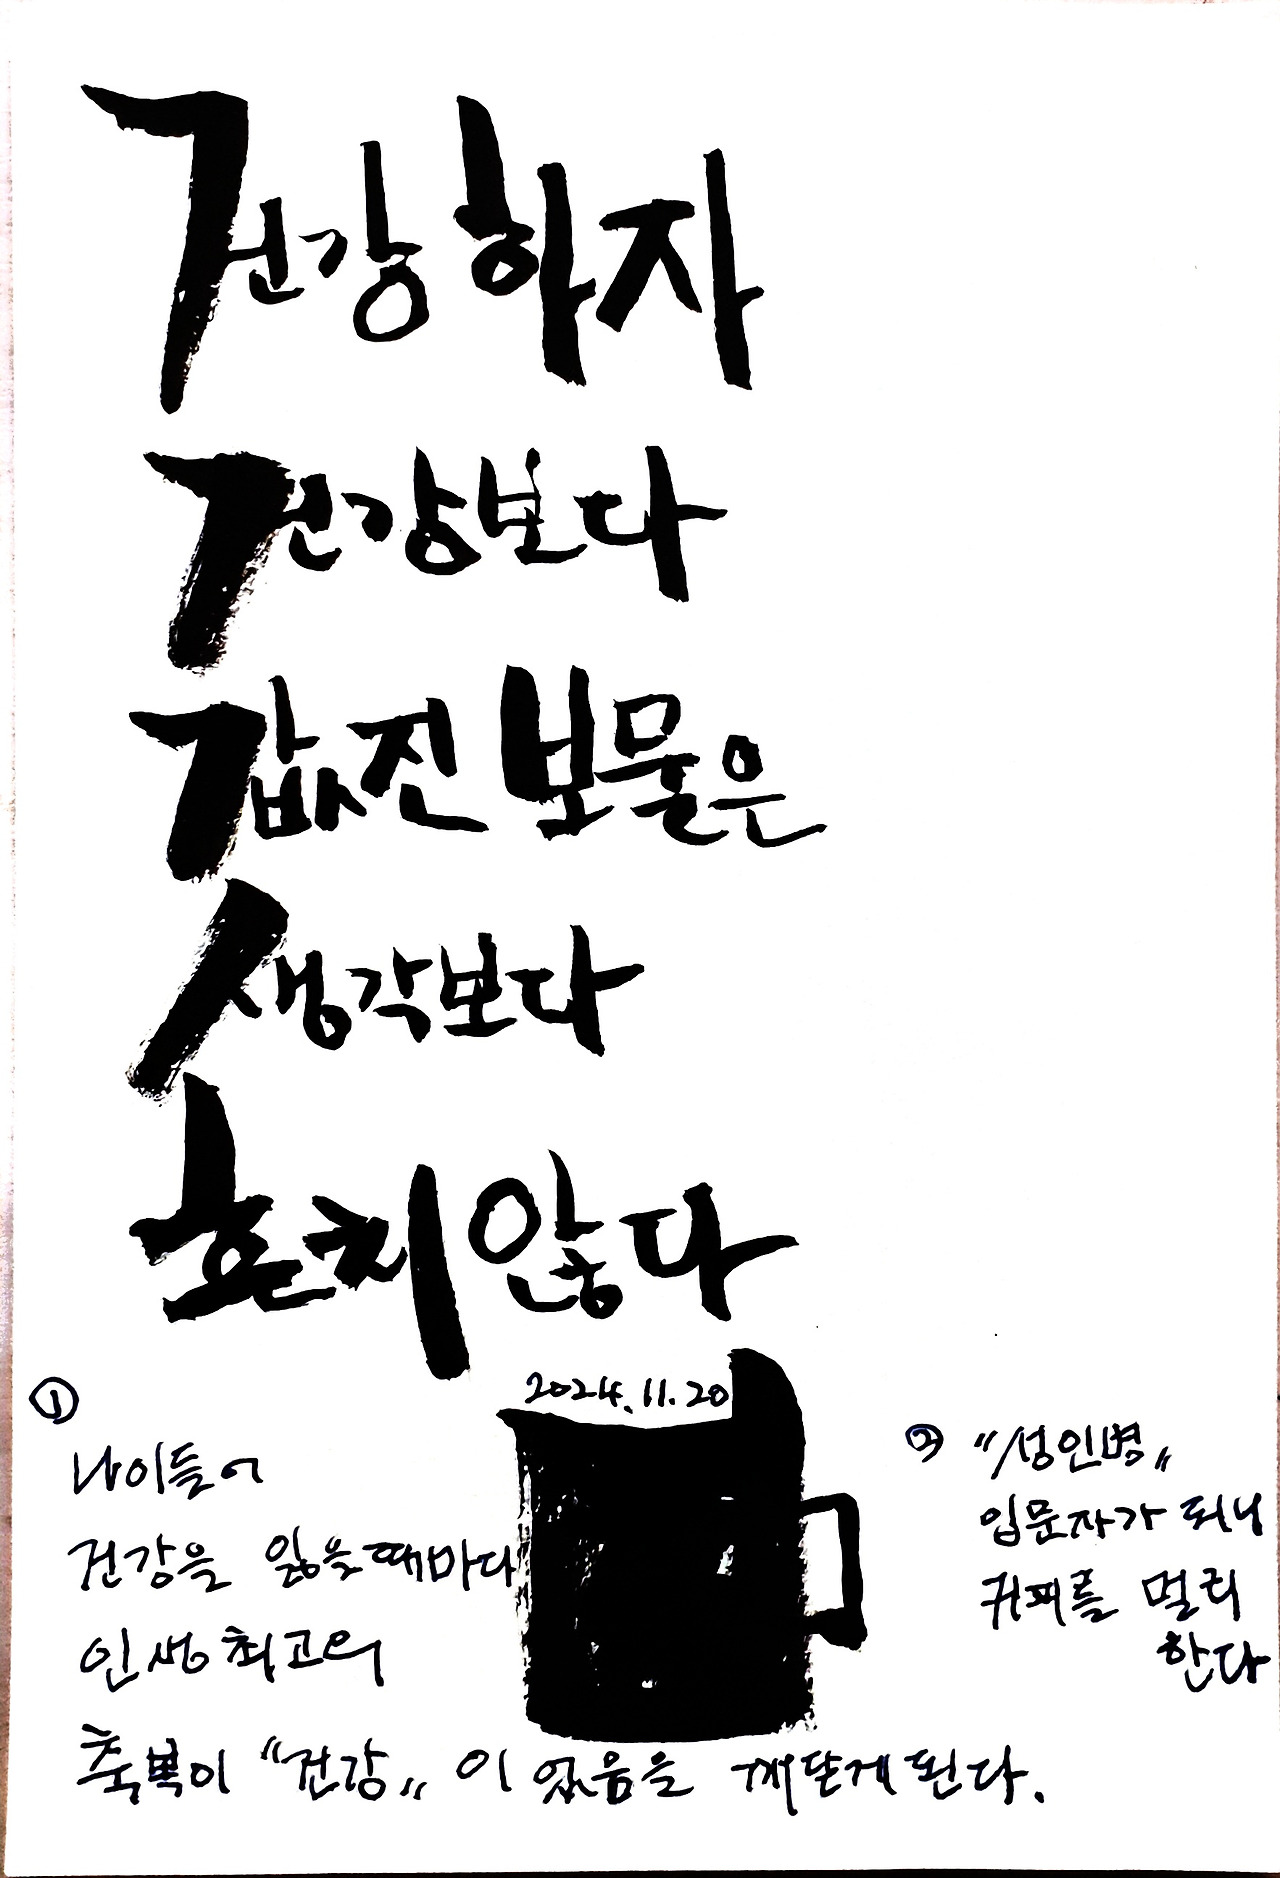 건강하자
건강보다
값진 보물은
생각보다
흔치 않다
2024.11.20
①
나이들어
건강을 잃을때마다
인생최고의
축복이 "건강" 이었음을 깨닫게된다.
② "성인병"
입문자가 되니
커피를 멀리
한다